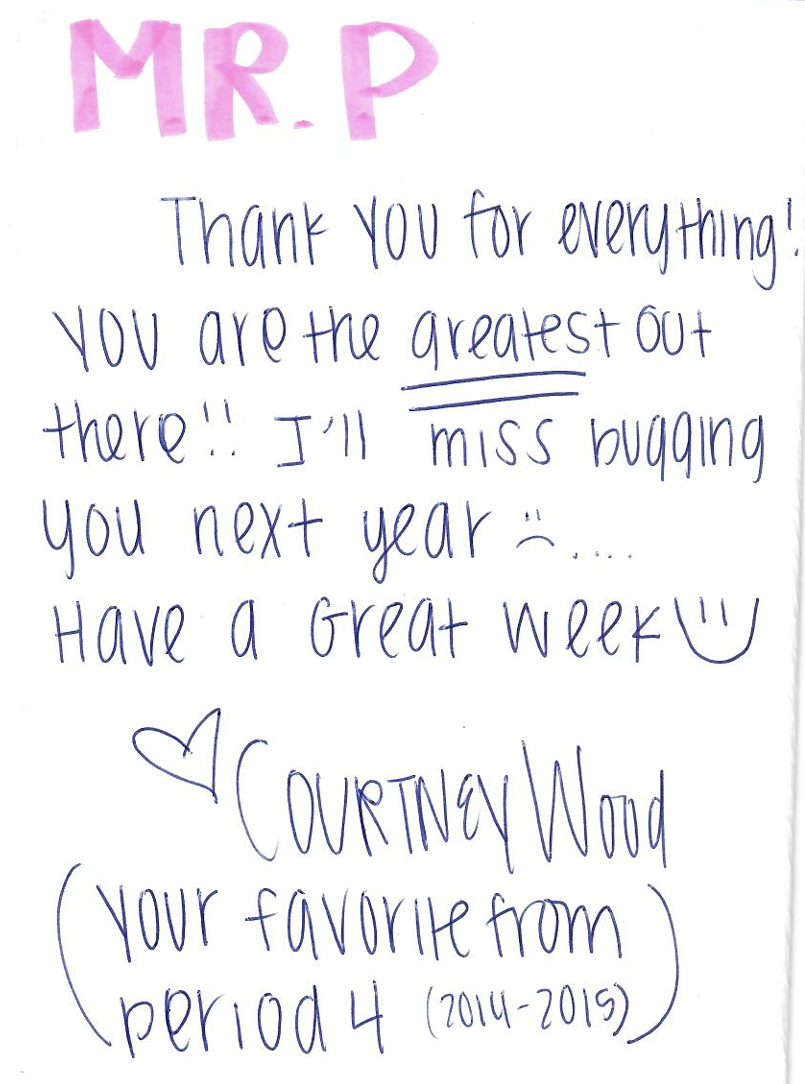 MR. P
Thank you for everything!
you are the greatest out
there!! I'll miss bugging
you next year :( ....
Have a Great week :)
♡ COURTNEY Wood
(your favorite from
period 4 (2014-2015))